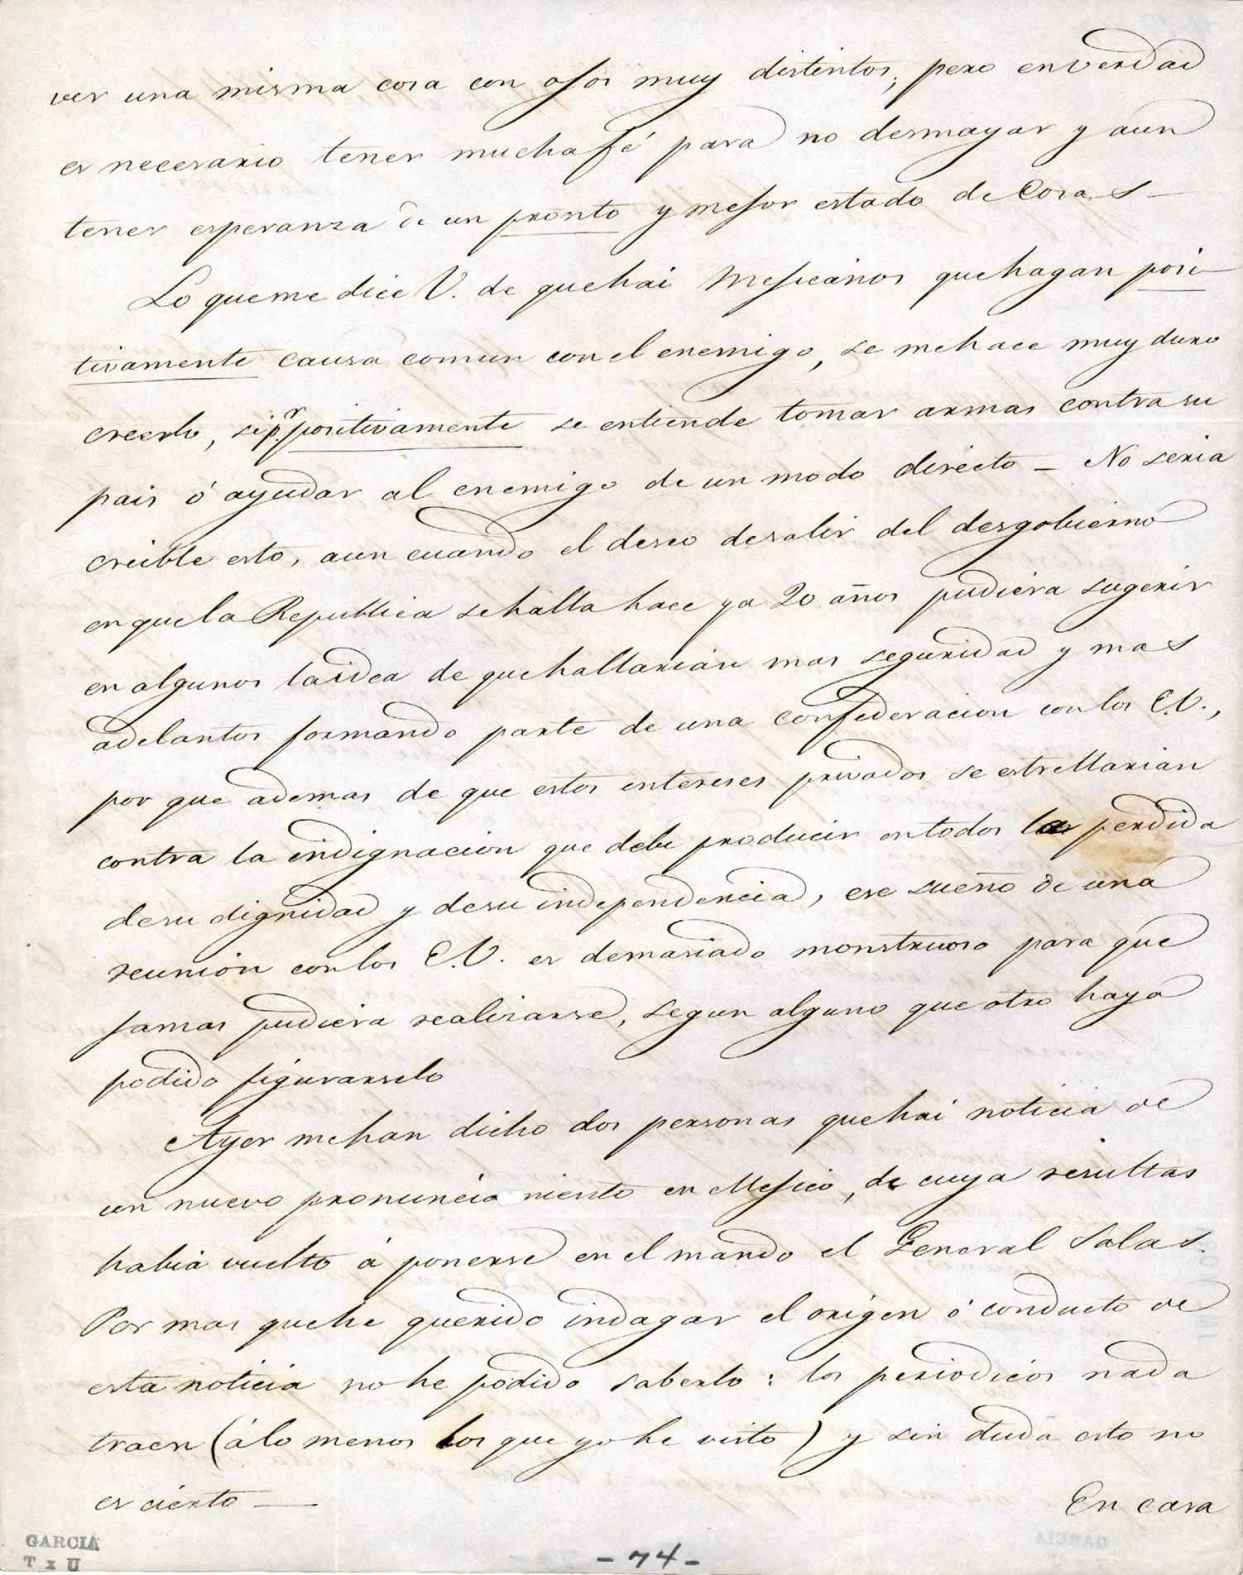 ver una misma cosa con ojos muy distintos; pero enverdad
es necesario tener muchafé para no desmayar y aun
tener esperanza de un pronto y mejor estado de Cosas—
Lo queme dice V. de quehai Mejicanos quehagan posi-
tivamente causa comun conel enemigo, se mehace muy duro
creerlo, sipr positivamente se entiende tomar armas contrasu
pais ó ayudar al enemigo de un modo directo — No seria
creible esto, aun cuando el deseo desalir del desgobierno
en quela Republica sehalla hace ya 20 años pudiera sugerir
en algunos laidea de quehallarián mas seguridad y mas
adelantos formando parte de una confederacion conlos E.U.,
por que ademas de que estos intereses privados se estrellarian
contra la indignacion que debe producir entodos la perdida
desu dignidad y desu independencia, ese sueño de una
reunión conlos E.U. es demasiado monstruoso para que
jamas pudiera realizarse, segun alguno que otro haya
podido figurarselo
Ayer mehan dicho dos personas quehai noticia de
un nuevo pronunciamiento en Mejico, de cuya resultas
habia vuelto á ponerse en el mando el General Salas.
Por mas quehe querido indagar el origen ó conducto de
esta noticia nohe podido saberlo: los periodicos nada
traen (álo menos los que yohe visto) y sin duda esto no
es cierto —
En casa
GARCIA
T x U
- 74 -